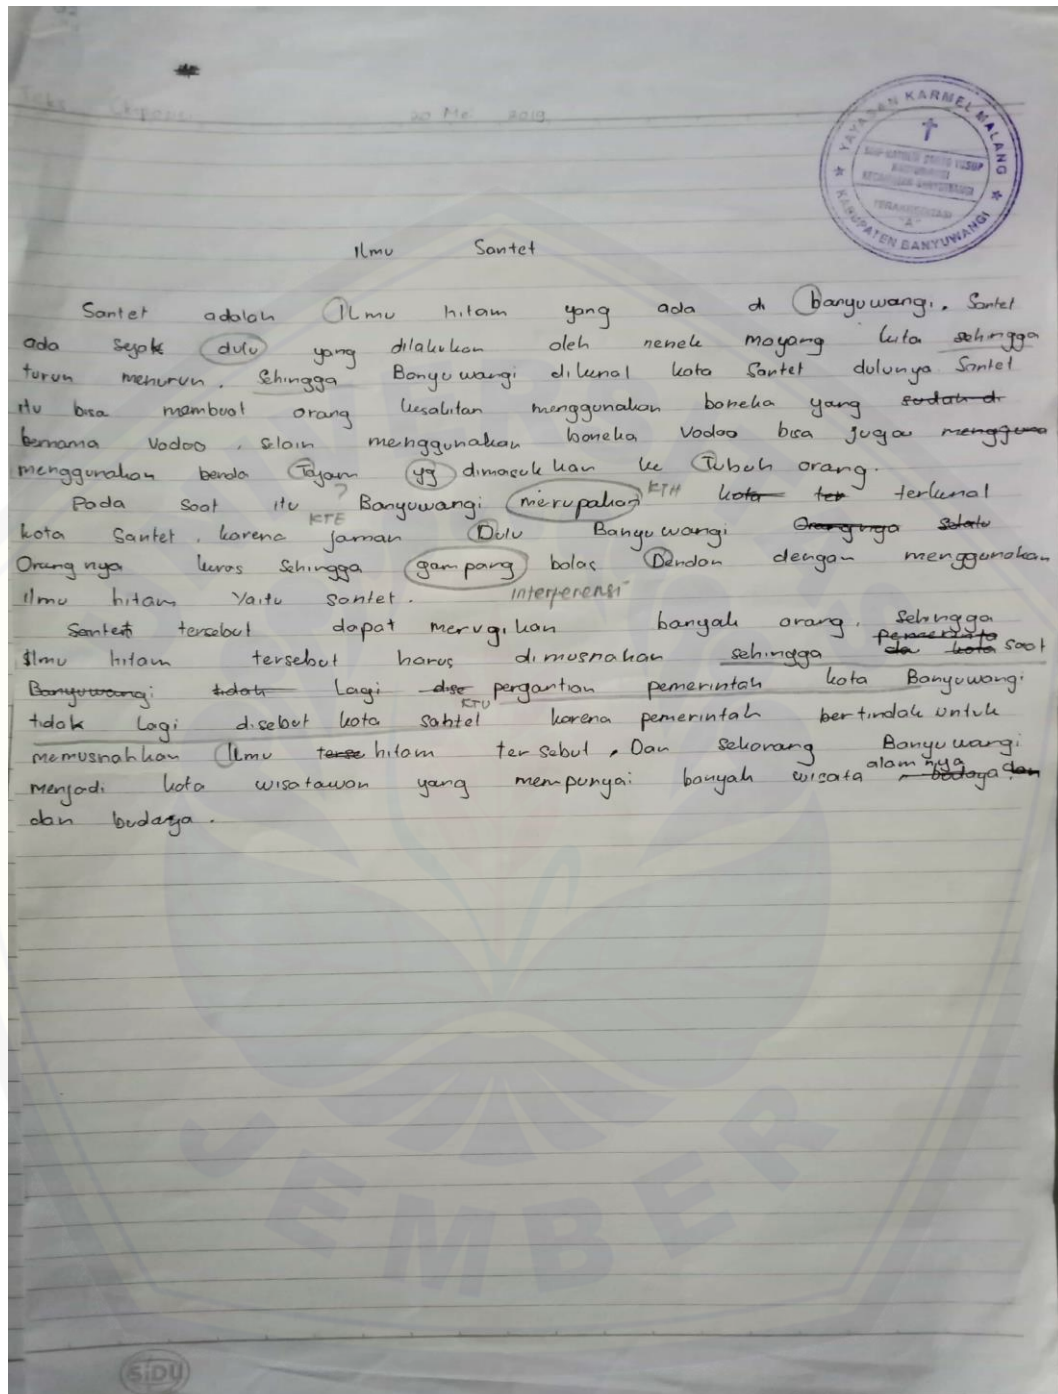 Teks Eksposisi 20 Mei 2019
YAYASAN KARMEL MALANG
KABUPATEN BANYUWANGI
TERAKREDITASI
"A"
Ilmu Santet
Santet adalah Ilmu hitam yang ada di banyuwangi. Santet
ada sejak dulu yang dilakukan oleh nenek moyang kita sehingga
turun menurun. Sehingga Banyuwangi dikenal kota Santet dulunya Santet
itu bisa membuat orang kesakitan menggunakan boneka yang sudah di
bernama Vodoo. selain menggunakan boneka Vodoo bisa juga mengguna
menggunakan benda Tajam yg dimasukkan ke Tubuh orang.
Pada saat itu ? Banyuwangi merupakan KTH kota ter terkenal
kota Santet, karena KTE jaman Dulu Banyuwangi Orangnya Selalu
Orangnya keras Sehingga gampang balas Dendan dengan menggunakan
ilmu hitam Yaitu santet. interferensi
Santet tersebut dapat merugikan banyak orang. Sehingga
Ilmu hitam tersebut harus dimusnahan sehingga pemerinta da kota saat
Banyuwangi tidak Lagi dise pergantian pemerintah kota Banyuwangi
tidak Lagi disebut kota santet KTU karena pemerintah bertindak untuk
memusnahkan Ilmu terse hitam tersebut, Dan sekarang Banyuwangi
menjadi kota wisatawan yang mempunyai banyak wisata alamnya, budaya dan
dan budaya.
SiDU
JEMBER